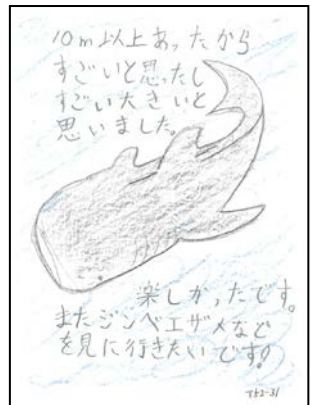 10m以上あったから
すごいと思ったし
すごい大きいと
思いました。
楽しかったです。
またジンベエザメなど
を見に行きたいです!
T52-31